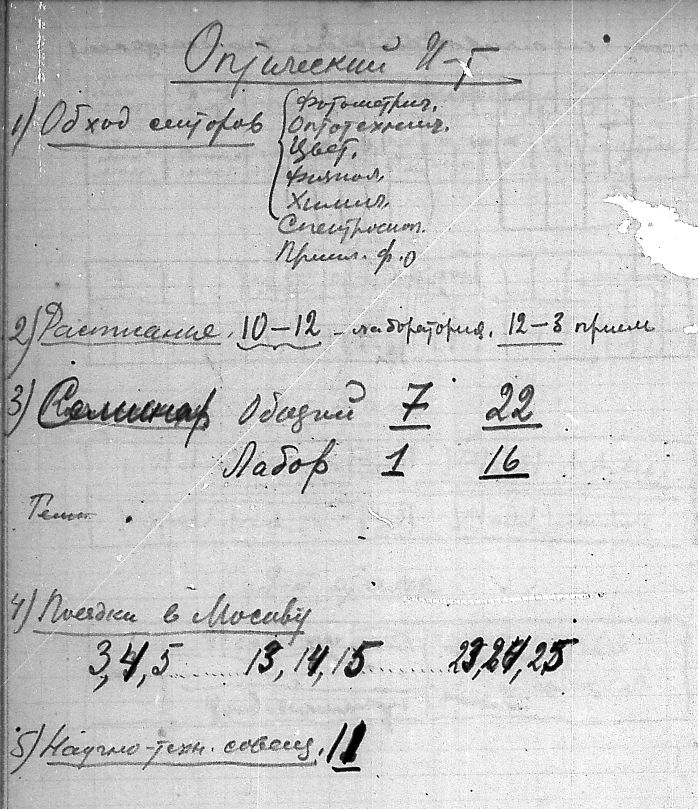 Оптический И-т
1) Обход секторов
Фотометрич.
Оптотехнич.
Цвет.
Физиол.
Химич.
Спектроскоп.
Прикл. ф. о
2) Расписание. 10–12 – лаборатория. 12–3 прием
3) Семинар Общий 7 22
Лабор 1 16
4) Поездки в Москву
3, 4, 5 ........ 13, 14, 15 ........ 23, 24, 25
5) Научно-техн. совещ. 11